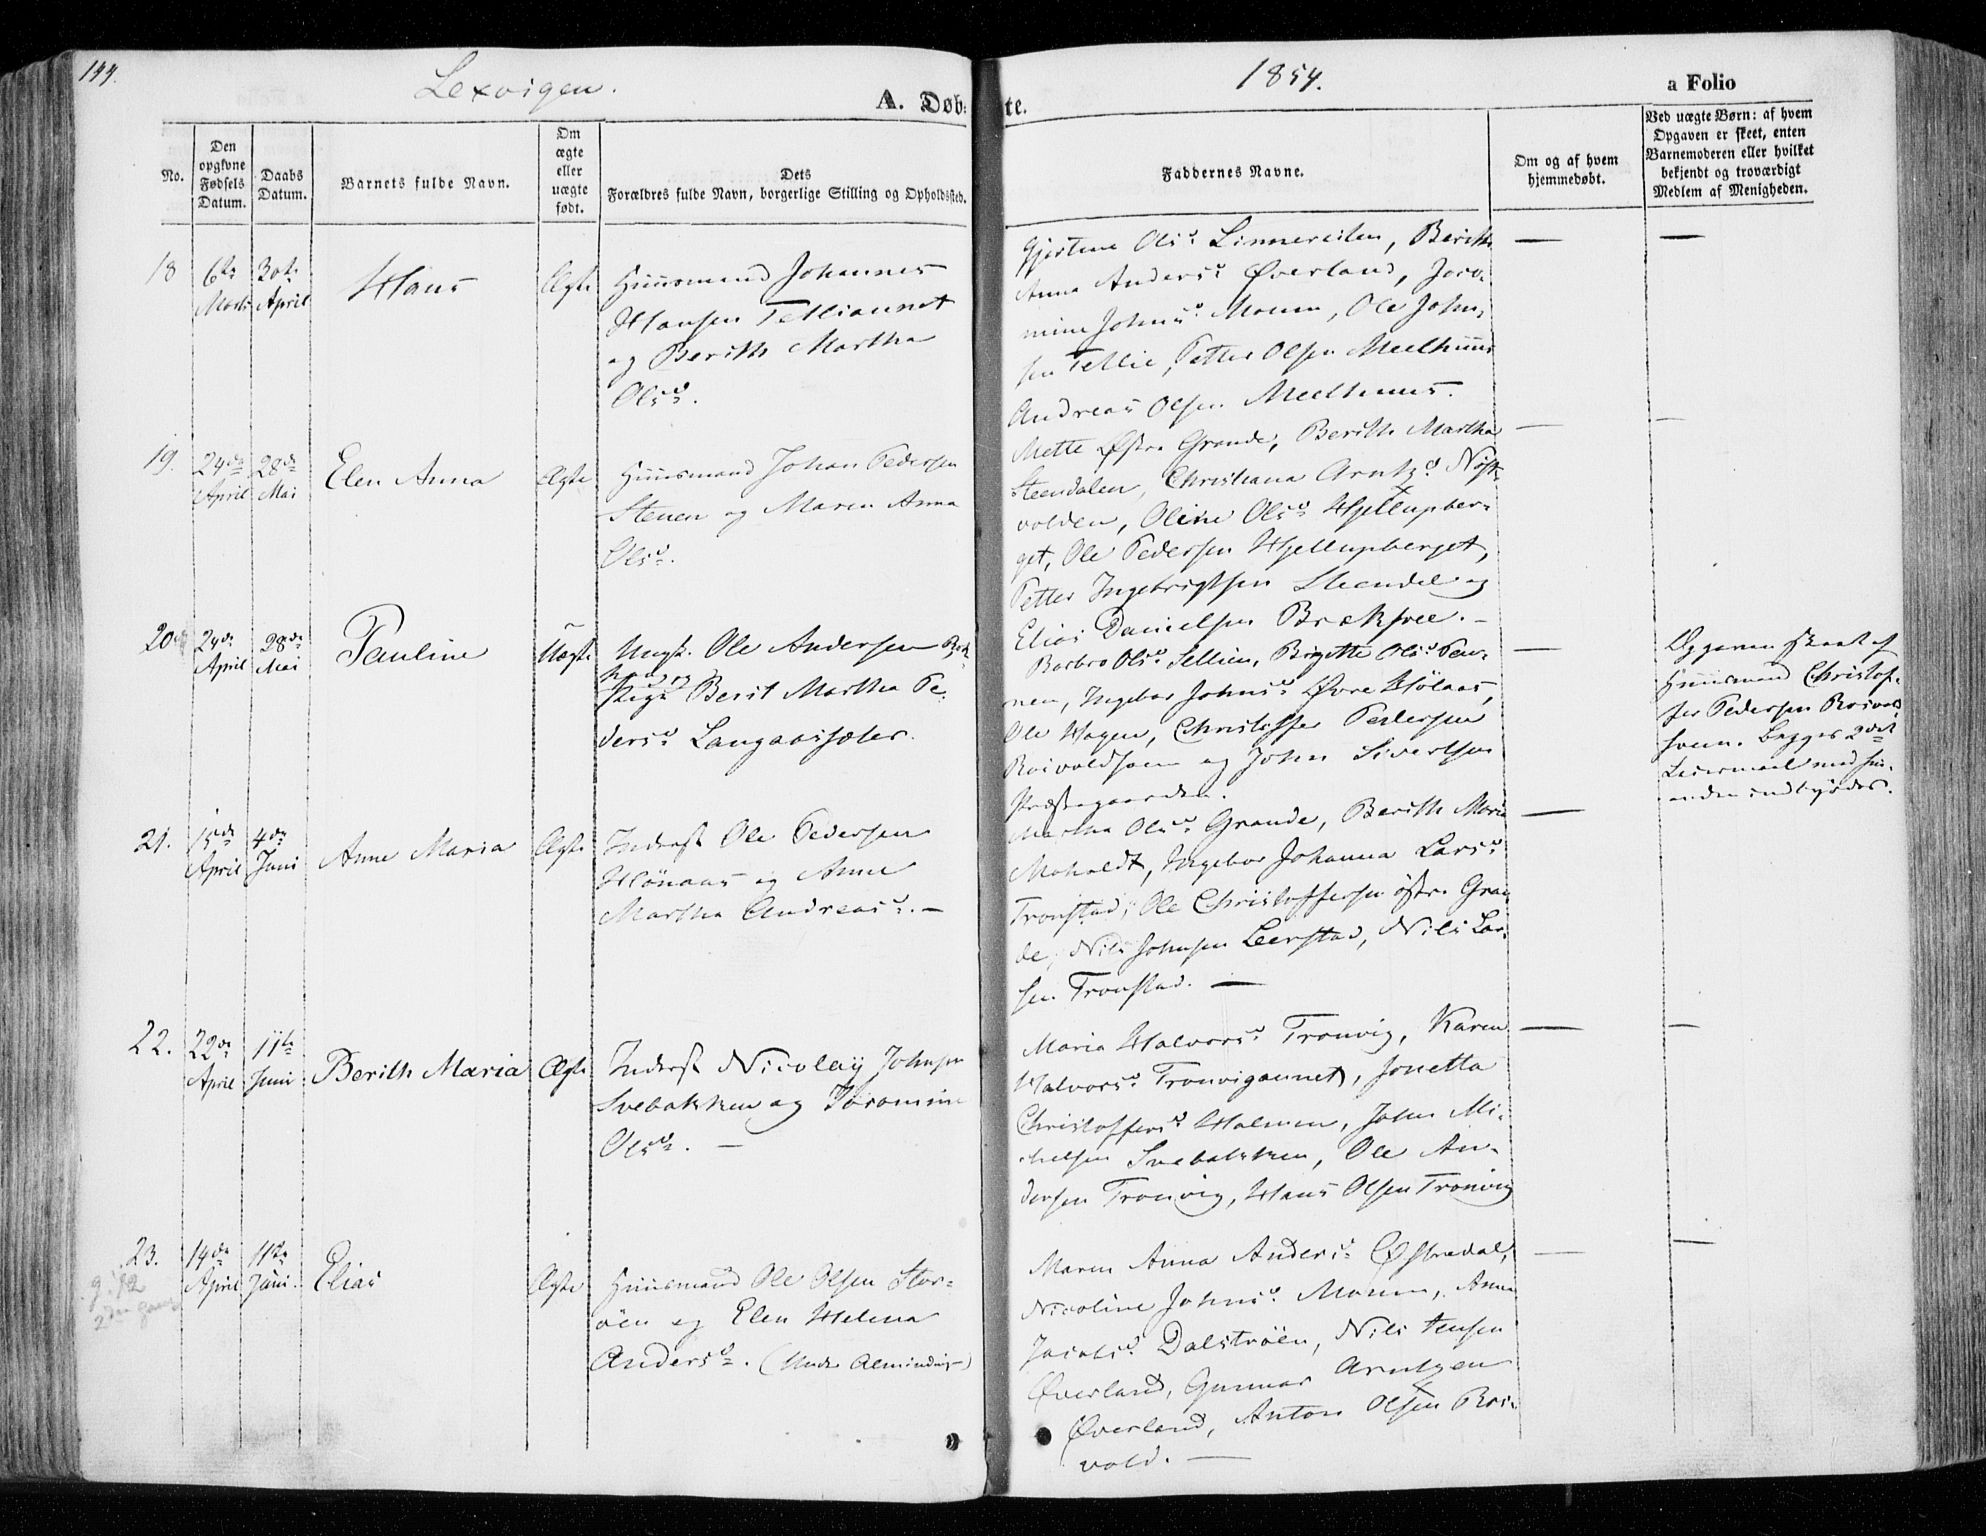 144.
Lexvigen.
1854.
a Folio
A. Døb- te.
No.
Den opgivne Fødsels Datum.
Daabs Datum.
Barnets fulde Navn.
Om ægte eller uægte født.
Dets
Forældres fulde Navn, borgerlige Stilling og Opholdssted.
Faddernes Navne.
Om og af hvem hjemmedøbt.
Ved uægte Børn: af hvem
Opgaven er skeet, enten
Barnemoderen eller hvilket
bekjendt og troværdigt
Medlem af Menigheden.
18
6te Marts
30te April
Hans
Ægte
Huusmand Johannes
Hansen Telliaunet
og Berith Martha
Olsd.
Olsd. Linnereilen, Berith
Anna Andersd. Øverland, Joro-
mine Johnsd. Moen, Ole John-
sen Tellie, Petter Olsen Meelhuus
Andreas Olsen Meelhuus.
—
—
19.
24de April
28de Mai
Elen Anna
Ægte
Huusmand Johan Pedersen
Stenen og Maren Anna
Olsd.
Mette Østre Grande, Berith Martha
Steendalen, Christiana Arntzd. Nøst-
volden, Oline Olsd. Hjellupber-
get, Ole Pedersen Hjellupberget,
Petter Ingebrigtsen Steendal og
Elias Danielsen Brækstee. -
—
—
20
24de April
28de Mai
Pauline
Uægte
Ungk. Ole Andersen
Pige Berit Martha Pe-
dersd. Langaassæter.
Barbro Olsd. Sellien, Brigitte Olsd.
nen, Ingebor Johnsd. Øvre Hölaas,
Ole Hagen, Christoffer Pedersen
Rosvoldsveen og John Sivertsen
Præstegaarden.
—
Opgaven skeet af
Huusmand Christof-
fer Pedersen Rosvold-
sveen. Begges 2det
Leiermaal med hin-
anden indbyrdes.
21.
15de April
4de Juni
Anne Maria
Ægte
Inderst Ole Pedersen
Hönaas og Anne
Martha Andreasd. —
Martha Olsd. Grande, Berith Maria
Moholdt, Ingebor Johanna Larsd.
Tronstad, Ole Christoffersen østre Gran-
de, Nils Johnsen Leerstad, Nils Lar-
sen Tronstad. —
—
22.
22de April
11te Juni
Berith Maria
Ægte
Inderst Nicolay Johnsen
Svebakken og Joromine
Olsd. —
Maria Halvorsd. Tronvig, Karen
Halvorsd. Tronvigaunet, Jonetta
Christoffersd. Holmen, John Mi-
chelsen Svebakken, Ole An-
dersen Tronvig, Hans Olsen Tronvig
—
—
23.
14de April
11te Juni.
Elias
Ægte
Huusmand Ole Olsen Stor-
öen og Elen Helena
Andersd. (Under Alminding)
Maren Anna Andersd. Østredal,
Nicoline Johnsd. Moen, Anna
Jacobsd. Dalströen, Nils Jensen
Øverland, Gunnar Arntzen
Øverland, Anton Olsen Ros-
vold. —
—
—
2den gang